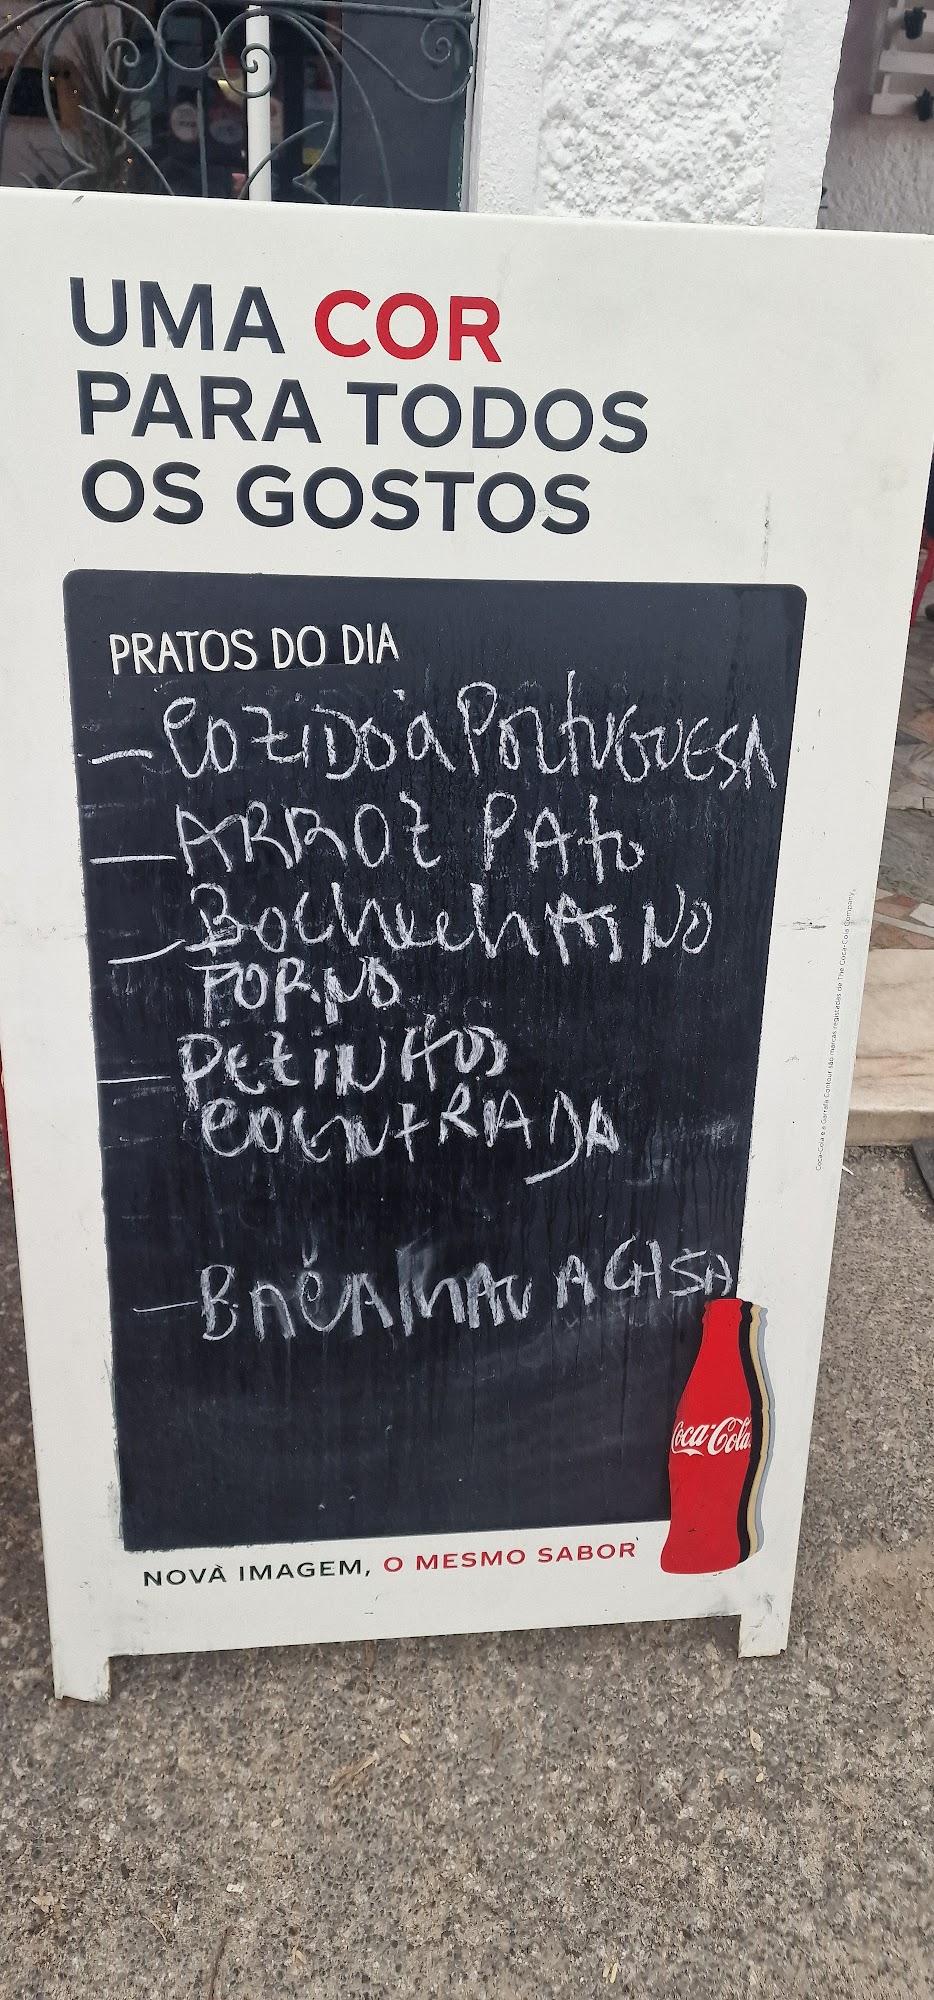 UMA COR
PARA TODOS
OS GOSTOS
PRATOS DO DIA
- COZIDO à PORTUGUESA
- ARROZ PATO
- BochechAs NO
FORNO
- PEZINHOS
COENTRADA
- BACAlhAU A CASA
Coca-Cola
NOVA IMAGEM, O MESMO SABOR
Coca-Cola e a Garrafa Contour são marcas registadas de The Coca-Cola Company.